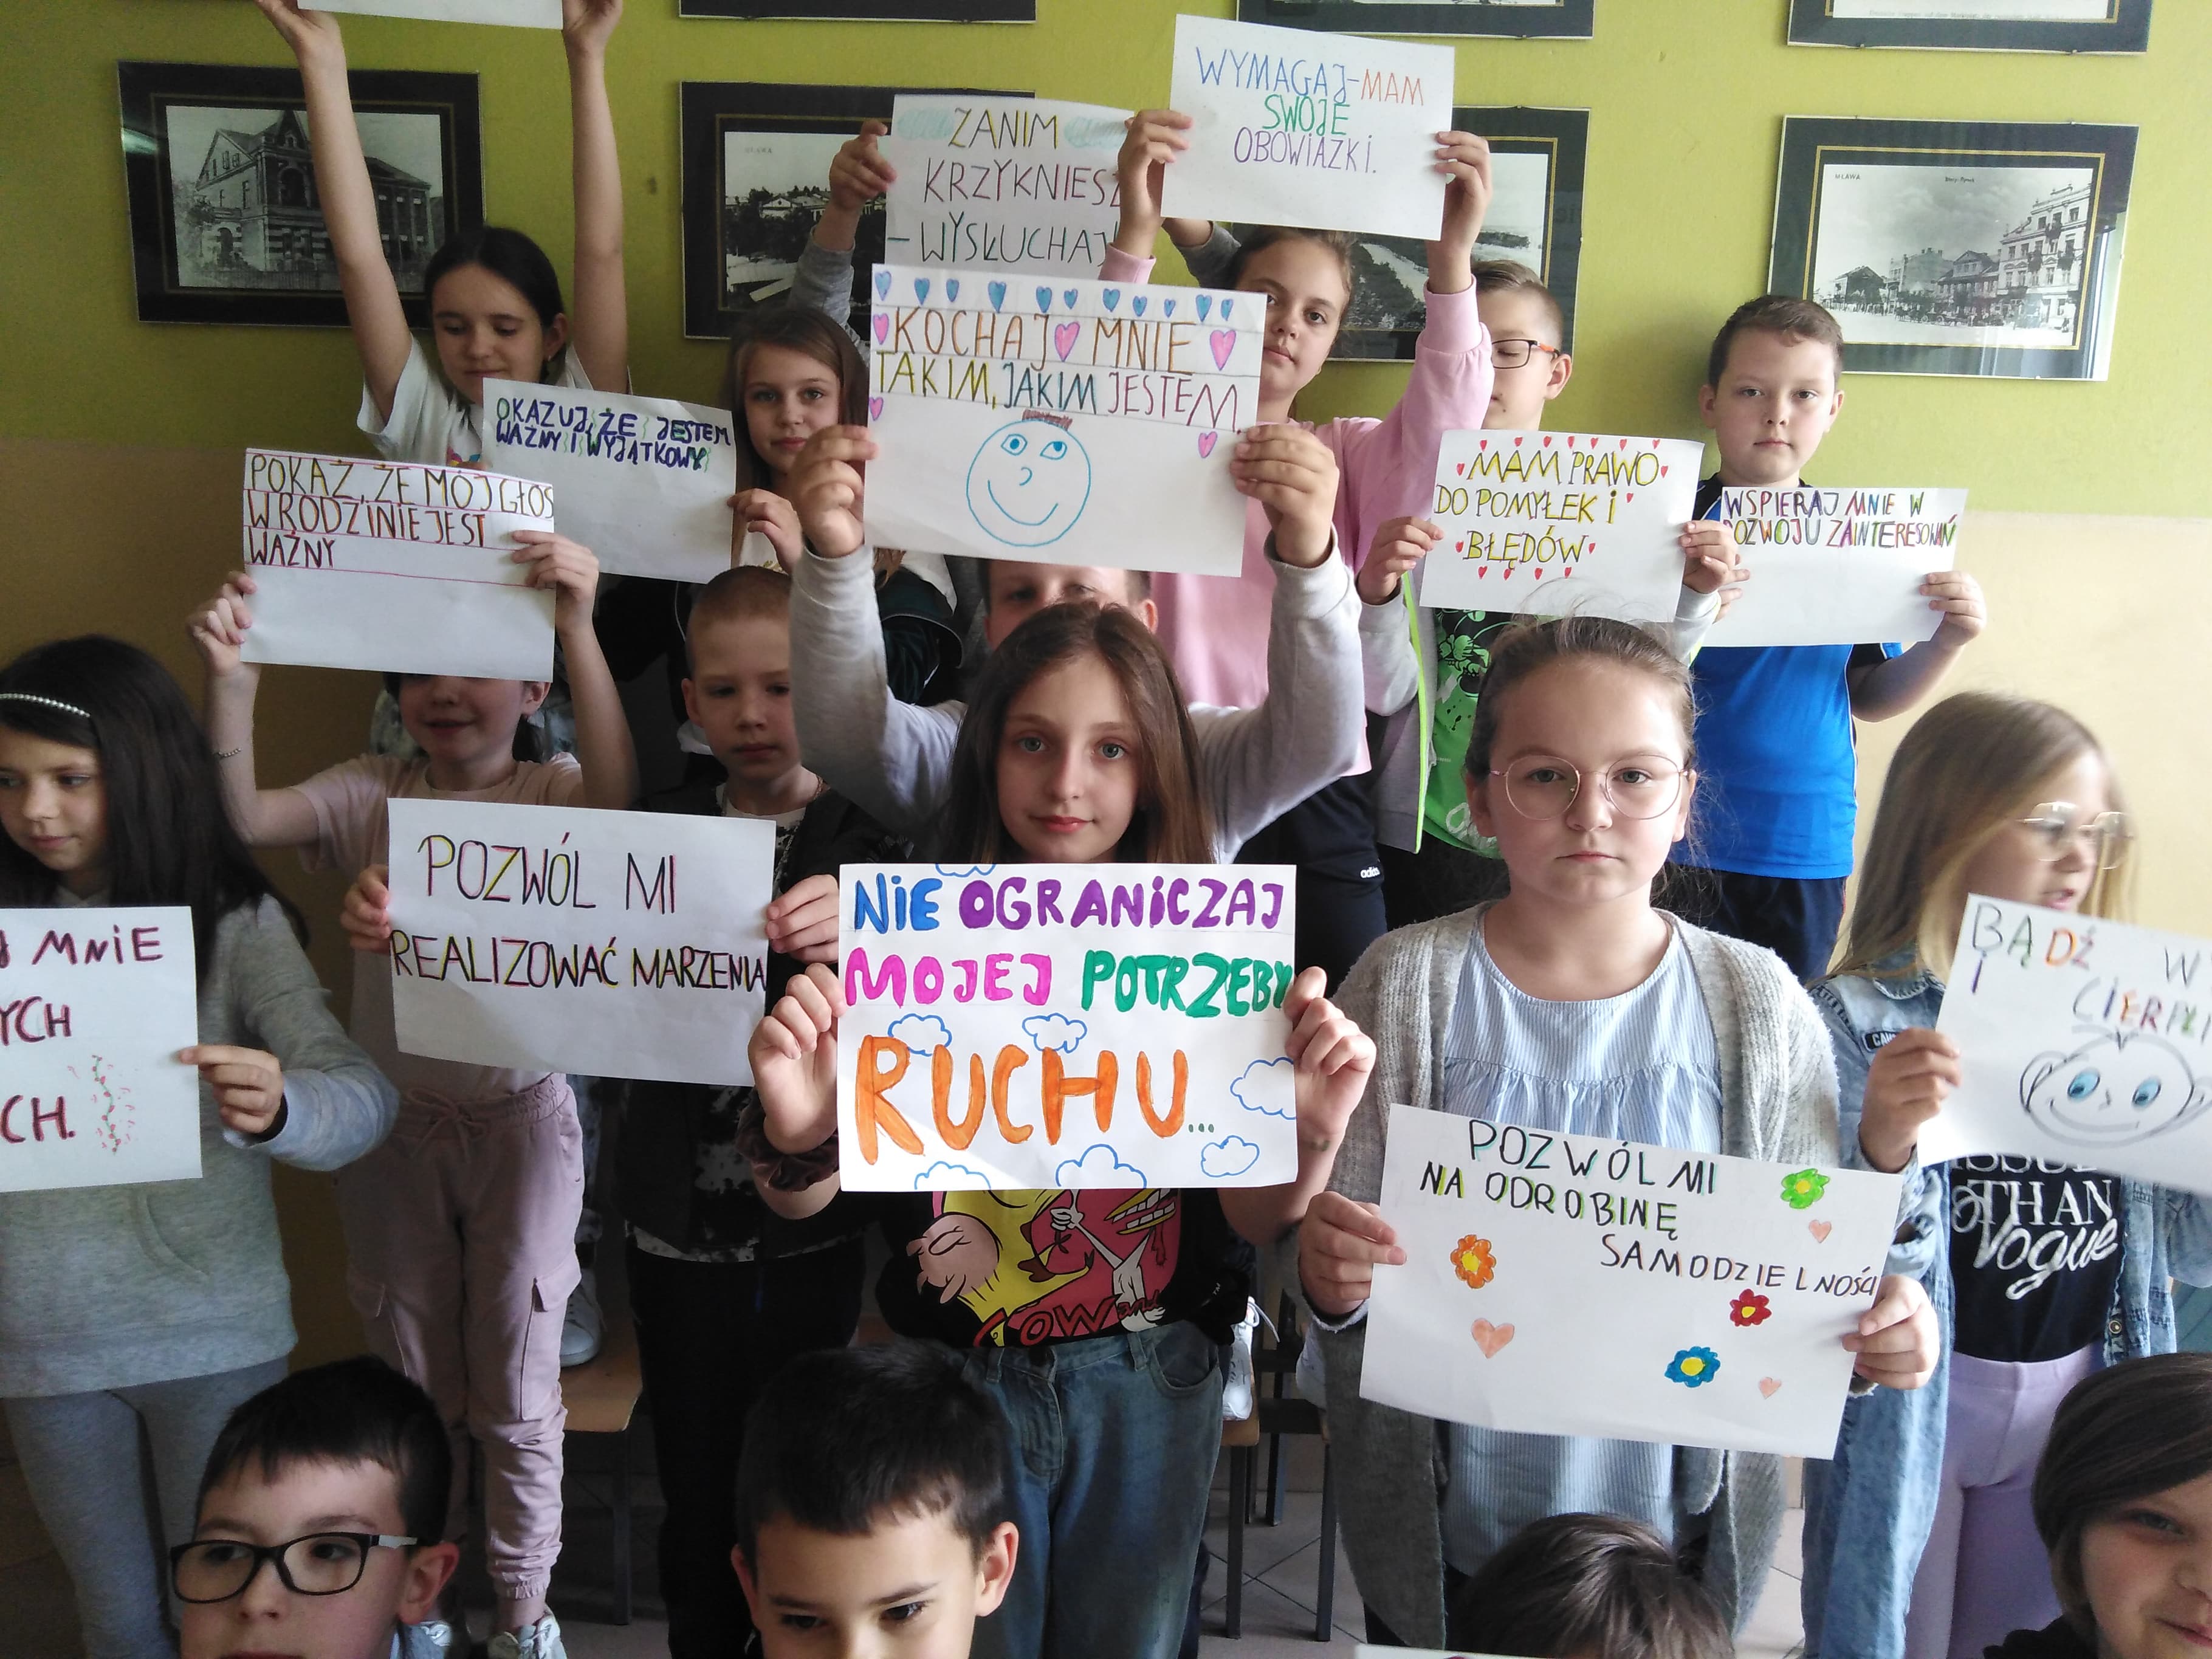 WYMAGAJ-MAM
SWOJE
OBOWIAZKI.
ZANIM
KRZYKNIESZ
- WYSŁUCHAJ
KOCHAJ MNIE
TAKIM, JAKIM JESTEM.
OKAZUJ, ŻE JESTEM
WAŻNY I WYJĄTKOWY
POKAŻ, ŻE MÓJ GŁOS
W RODZINIE JEST
WAŻNY
MAM PRAWO
DO POMYŁEK I
BŁĘDÓW
WSPIERAJ MNIE W
ROZWOJU ZAINTERESOWAŃ
MNIE
YCH
CH.
POZWÓL MI
REALIZOWAĆ MARZENIA
NIE OGRANICZAJ
MOJEJ POTRZEBY
RUCHU...
POZWÓL MI
NA ODROBINĘ
SAMODZIELNOŚCI
BĄDŹ W
I CIERPLI
THAN
Vogue
COW and
adidas
MŁAWA